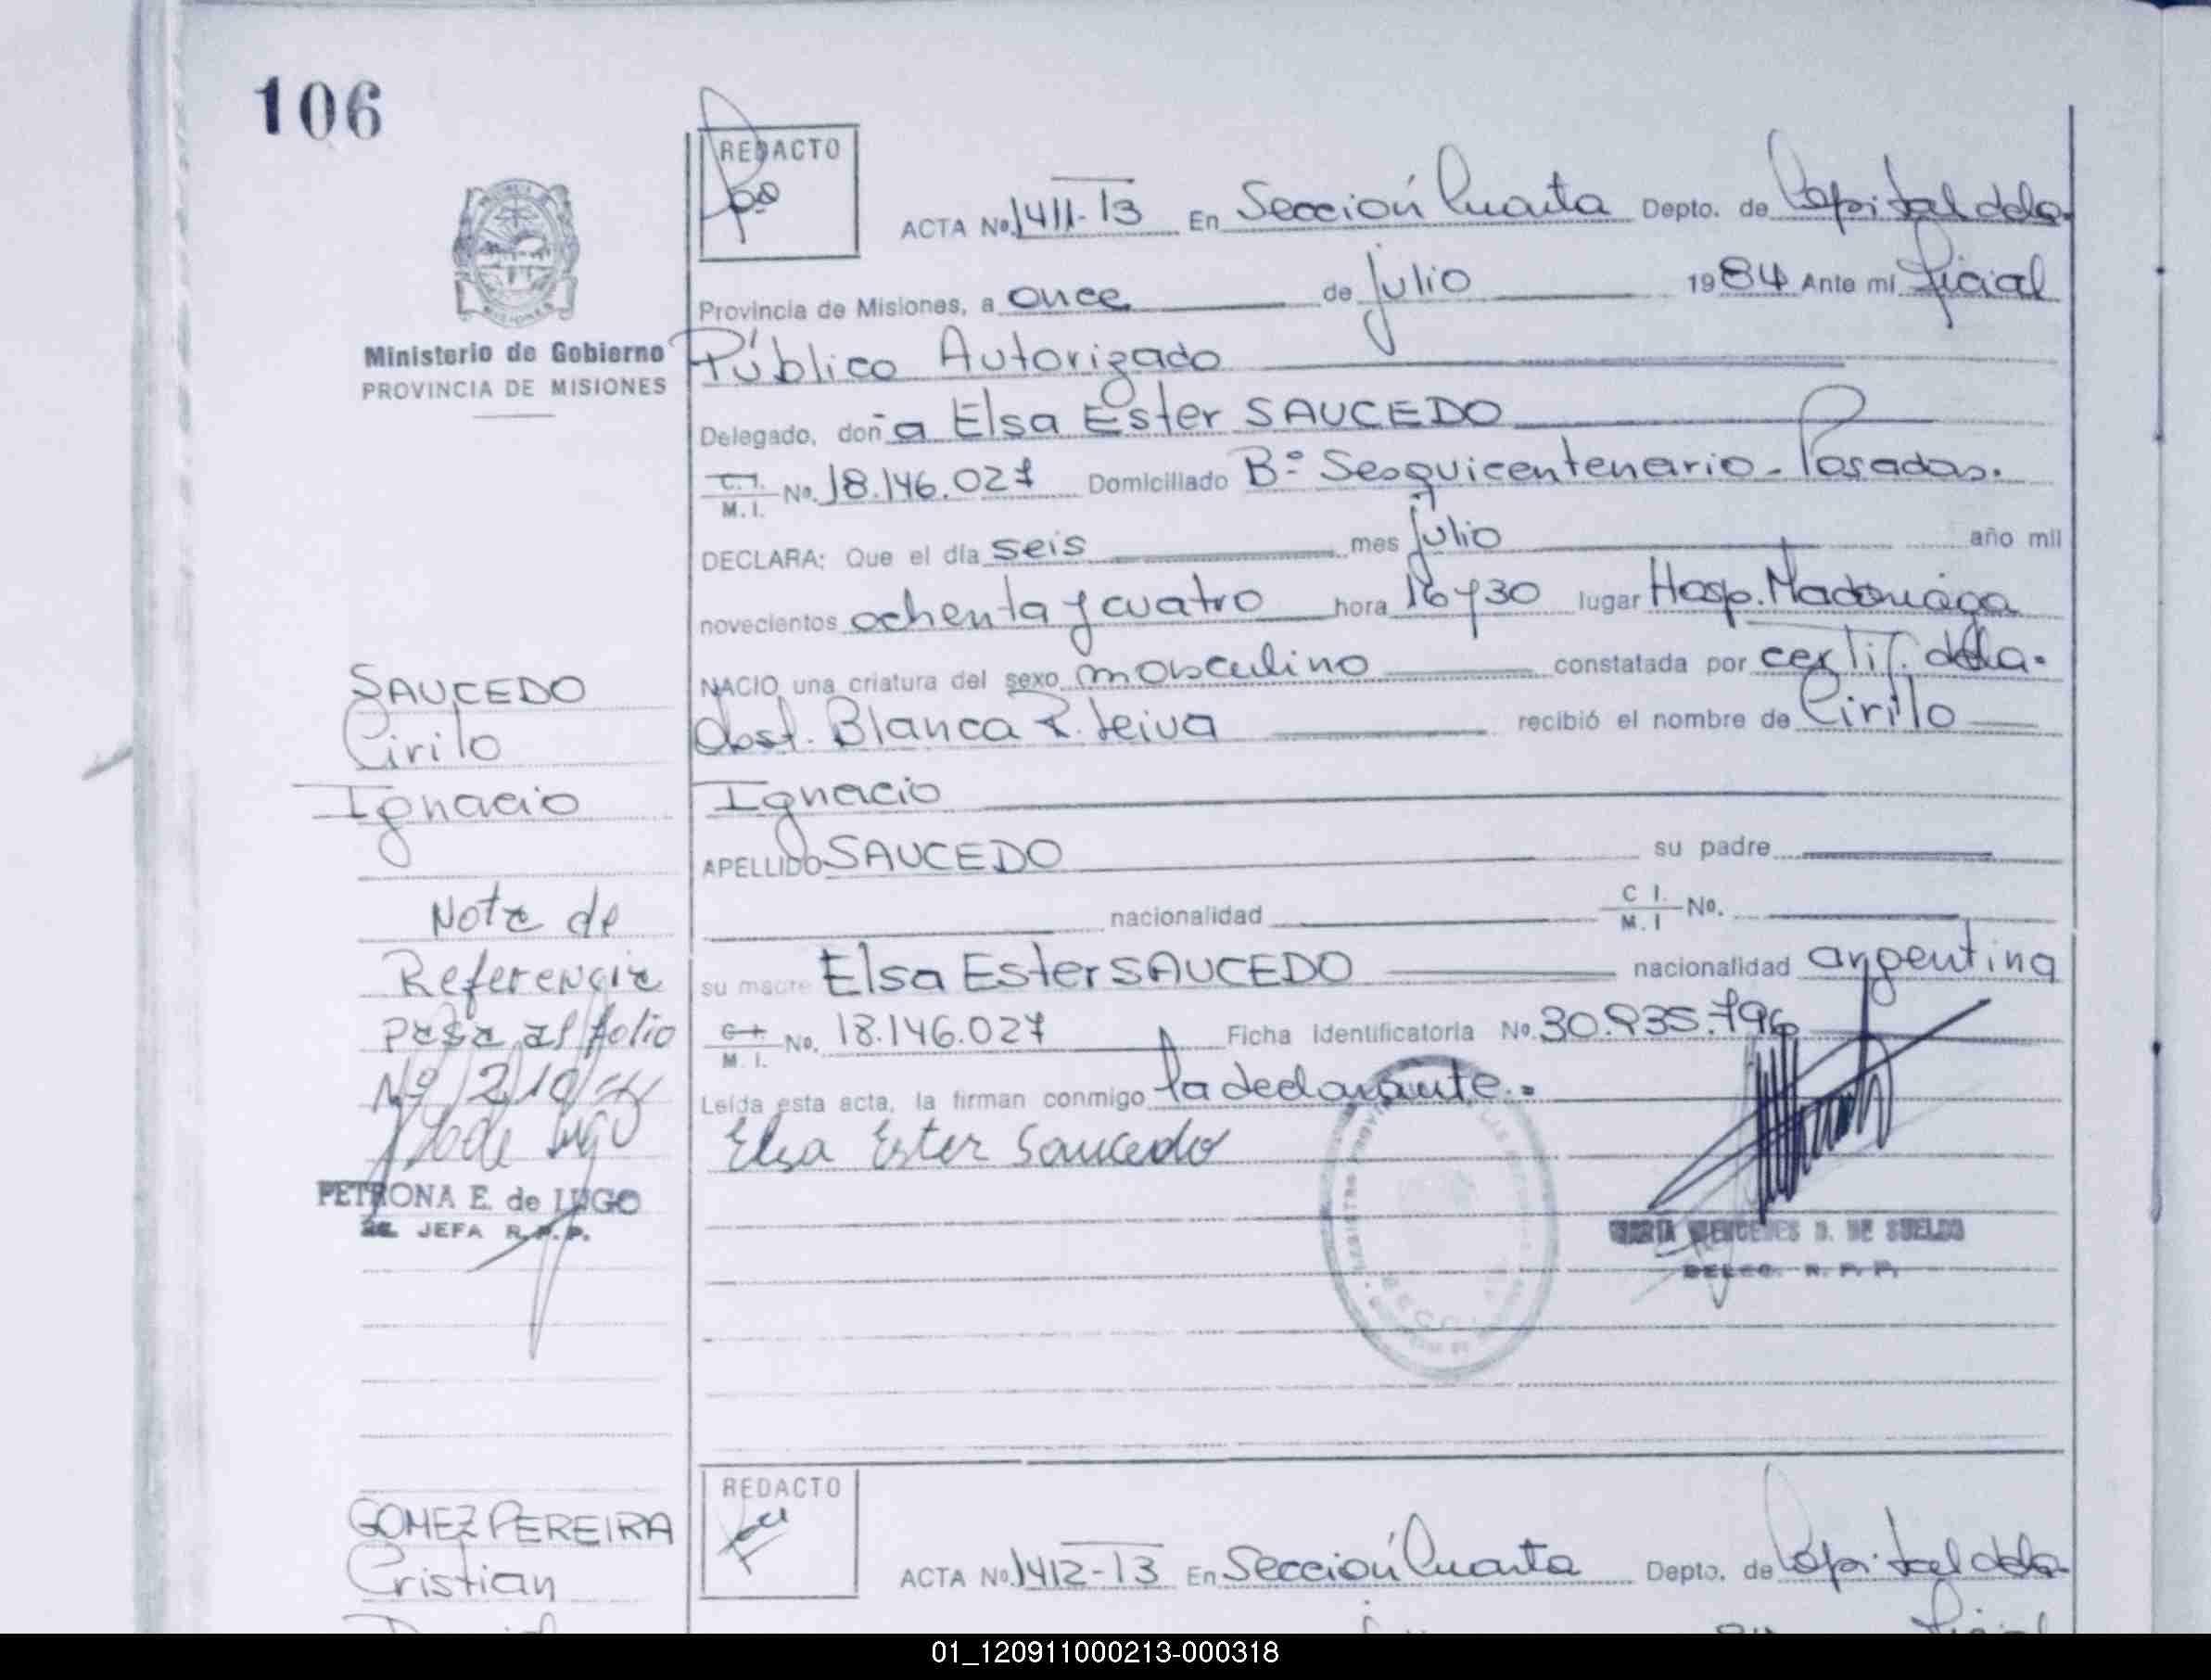 106
REDACTO
ACTA No. 1411-13 En Sección Cuarta Depto. de Capital dela
Provincia de Misiones, a once de julio 1984 Ante mi Oficial
Público Autorizado
Ministerio de Gobierno
PROVINCIA DE MISIONES
Delegado, doña Elsa Ester SAUCEDO
C.I. M.I. No. 18.146.027 Domiciliado B° Sesquicentenario - Posadas.
DECLARA: Que el día seis mes julio año mil
novecientos ochenta y cuatro hora 16 y 30 lugar Hosp. Madariaga
NACIO una criatura del sexo masculino constatada por certif. dela
Obst. Blanca R. Leiva recibió el nombre de Cirilo
Ignacio
APELLIDO SAUCEDO su padre
nacionalidad C I. M. I No.
su madre Elsa Ester SAUCEDO nacionalidad argentina
C.I. M. I. No. 18.146.027 Ficha identificatoria No. 30.935.796
Leída esta acta, la firman conmigo la declarante.
Elsa Ester Saucedo
SAUCEDO
Cirilo
Ignacio
Nota de
Referencia
Pasa al folio
Nº 210
PETRONA E. de LUGO
JEFA R.P.P.
D. DE SUELDO
R. P. P.
GOMEZ PEREIRA
Cristian
REDACTO
ACTA No. 1412-13 En Sección Cuarta Depto. de Capital dela
01_120911000213-000318